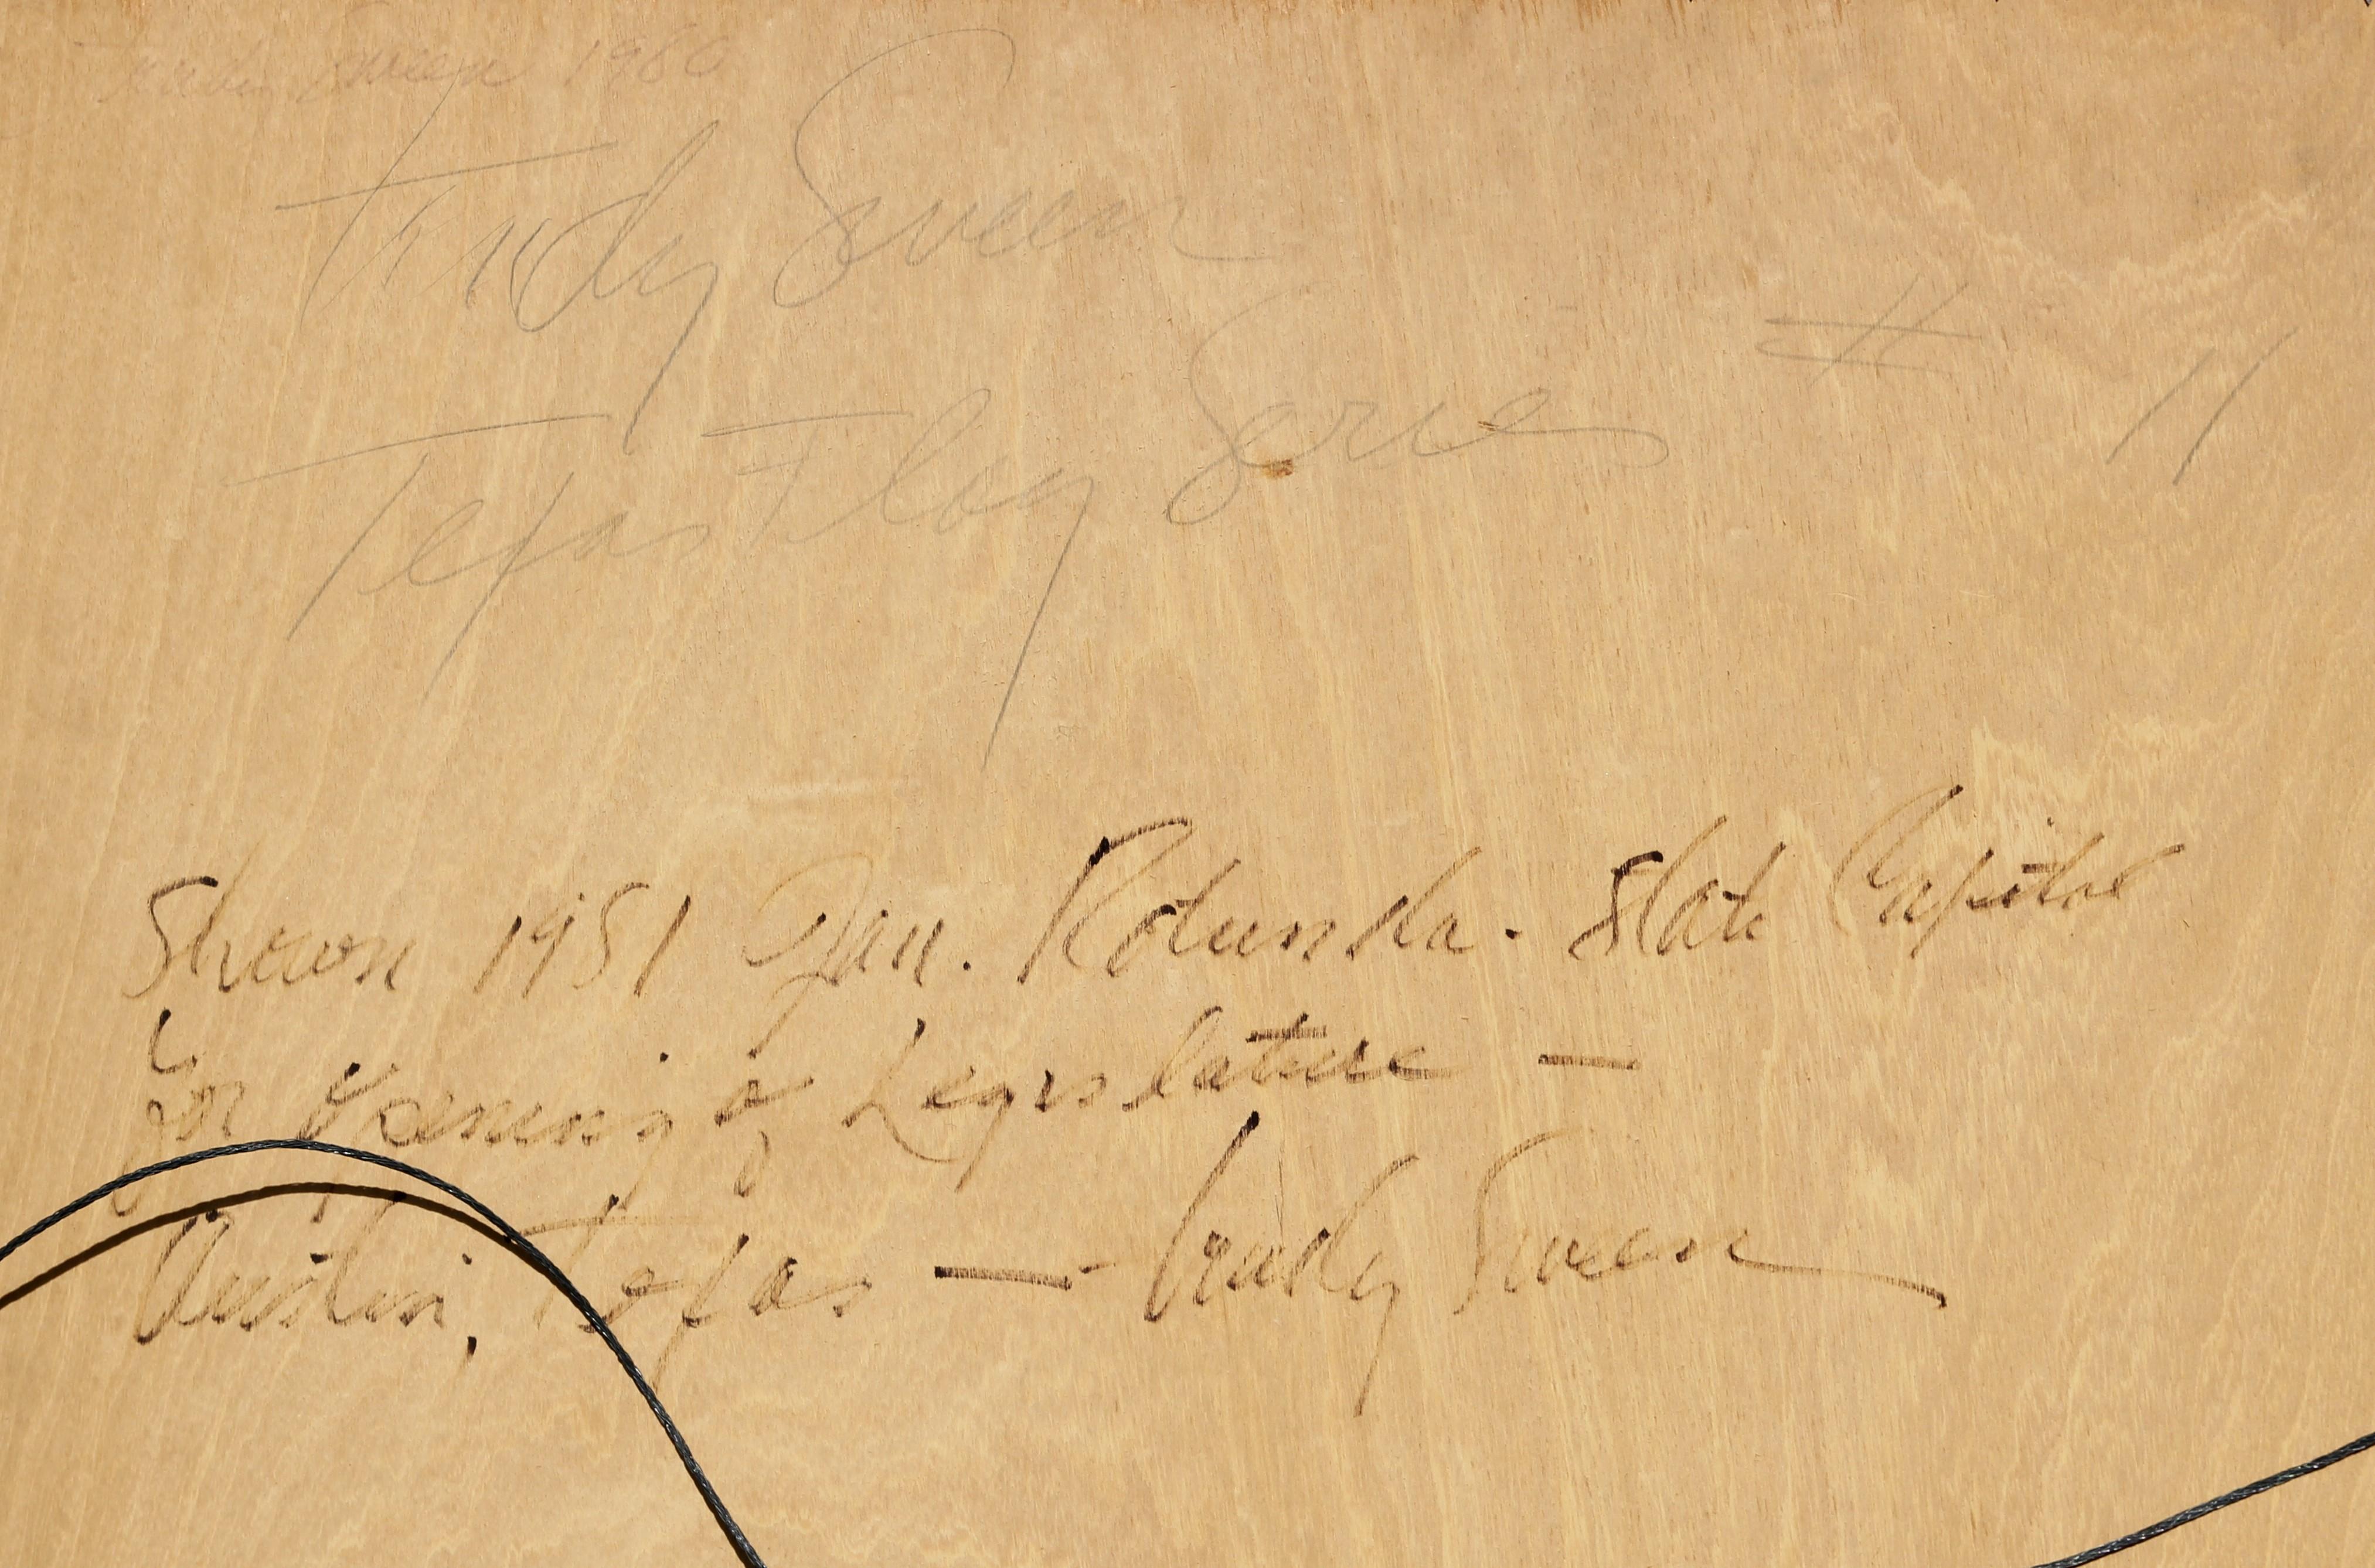 Trudy Sween 1980
Trudy Sween
Texas Flag Series # 11
Shown 1981 Jan. Rotunda. State Capitol
for Opening of Legislature —
Austin, Texas — Trudy Sween